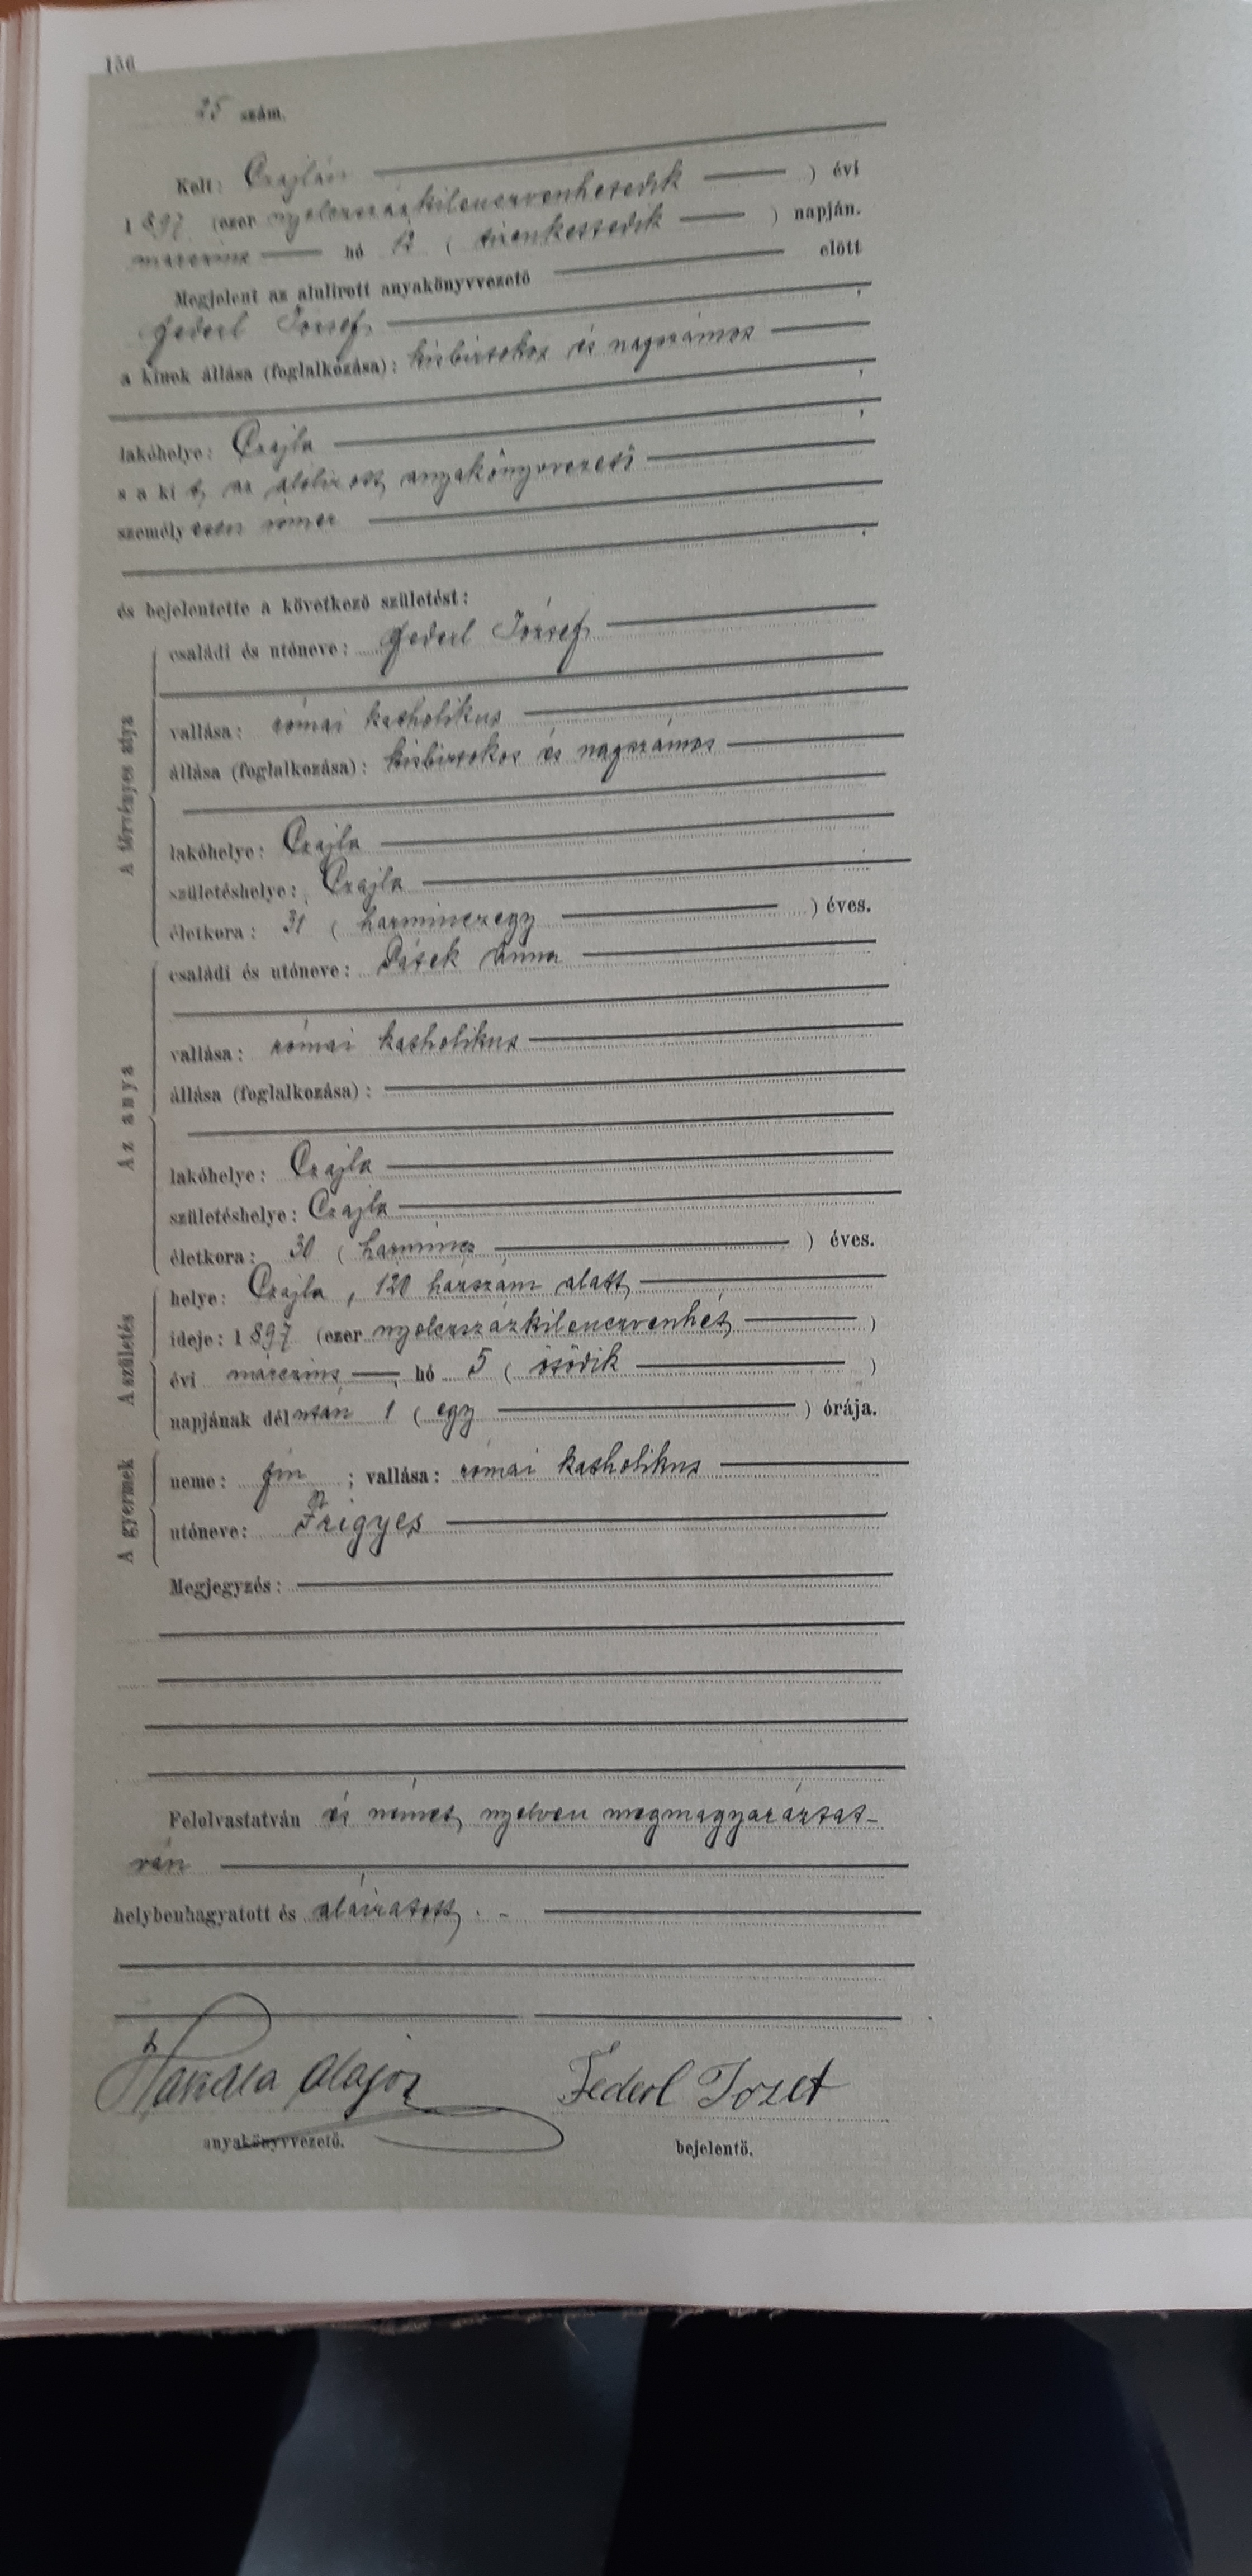 156
25 szám.
Kelt: Czajlán
1897 (ezer nyolczszázkilenczvenhetedik ) évi
márczius hó 12 ( tizenkettedik ) napján.
Megjelent az alulirott anyakönyvvezető előtt
Federl József,
a kinek állása (foglalkozása): kisbirtokos és napszámos
lakóhelye: Czajla
s a ki t, az alólirott anyakönyvvezető
személyesen ismer
és bejelentette a következő születést:
A törvényes atya
családi és utóneve: Federl József
vallása: római katholikus
állása (foglalkozása): kisbirtokos és napszámos
lakóhelye: Czajla
születéshelye: Czajla
életkora: 31 ( harminczegy ) éves.
Az anya
családi és utóneve: Anna
vallása: római katholikus
állása (foglalkozása):
lakóhelye: Czajla
születéshelye: Czajla
életkora: 30 ( harmincz ) éves.
A születés
helye: Czajla, 120 házszám alatt
ideje: 1897 (ezer nyolczszázkilenczvenhét )
évi márczius hó 5 ( ötödik )
napjának délután 1 ( egy ) órája.
A gyermek
neme: fiu ; vallása: római katholikus
utóneve: Frigyes
Megjegyzés:
Felolvastatván és német nyelven megmagyaráztat-
ván
helybenhagyatott és aláiratott. -
Alajos Federl Jozef
anyakönyvvezető. bejelentő.